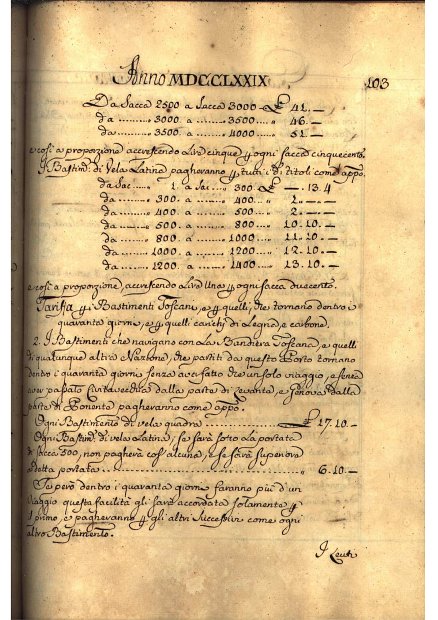 Anno MDCCLXXIX 103
Da Sacca 2500 a Sacca 3000 £ 41.—
da ........ „ 3000 a ........ „ 3500 .... „ 46.—
da ........ „ 3500 a ........ „ 4000 .... „ 51.—
e così a proporzione accrescendo Lire cinque p ogni sacca cinquecento.
I Bastimti di Vela Latina pagheranno p tutti i di titoli come appo
da Sac ..... „ 1. a Sac ... „ 300. £ —. 13.4
da ........ „ 300. a ........ „ 400. „ 1. —.—
da ........ „ 400. a ........ „ 500. „ 2. —.—
da ........ „ 500. a ........ „ 800 „ 10.10.—
da ........ „ 800 a ........ „ 1000 „ 11.10.—
da ........ „ 1000. a ........ „ 1200. „ 12.10.—
da ........ „ 1200. a ........ „ 1400 „ 13.10.—
e così a proporzione, accrescendo Lire Una p ogni sacca duecento.
Tariffa p i Bastimenti Toscani, e p quelli, che tornano dentro i
quaranta giorni, e p quelli carichi di Legne, e carbone.
2. I Bastimenti che navigano con La Bandiera Toscana, e quelli
di qualunque altra Nazione, che partiti da questo Porto tornano
dentro i quaranta giorni senza aver fatto che un solo viaggio, e senza
aver passato Civitavecchia dalla parte di Levante, e Genova dalla
parte di Ponente pagheranno come appo
Ogni Bastimento di vela quadra .................. £ 17.10.—
Ogni Bastimo di vela Latina, se sarà sotto La portata
di sacca 500, non pagherà cos' alcuna, e se sarà superiore
a detta portata .................. „ 6.10.—
Se però dentro i quaranta giorni faranno più d'un
viaggio questa facilità gli sarà accordata solamente p
il primo, e pagheranno p gli altri successivi come ogni
altro Bastimento.
I Leuti